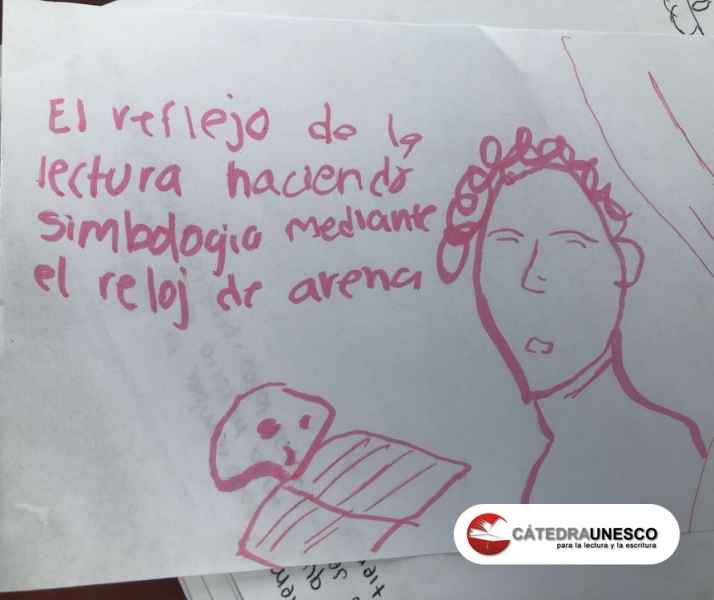 El reflejo de la
lectura haciendo
simbologia mediante
el reloj de arena
CÁTEDRAUNESCO
para la lectura y la escritura